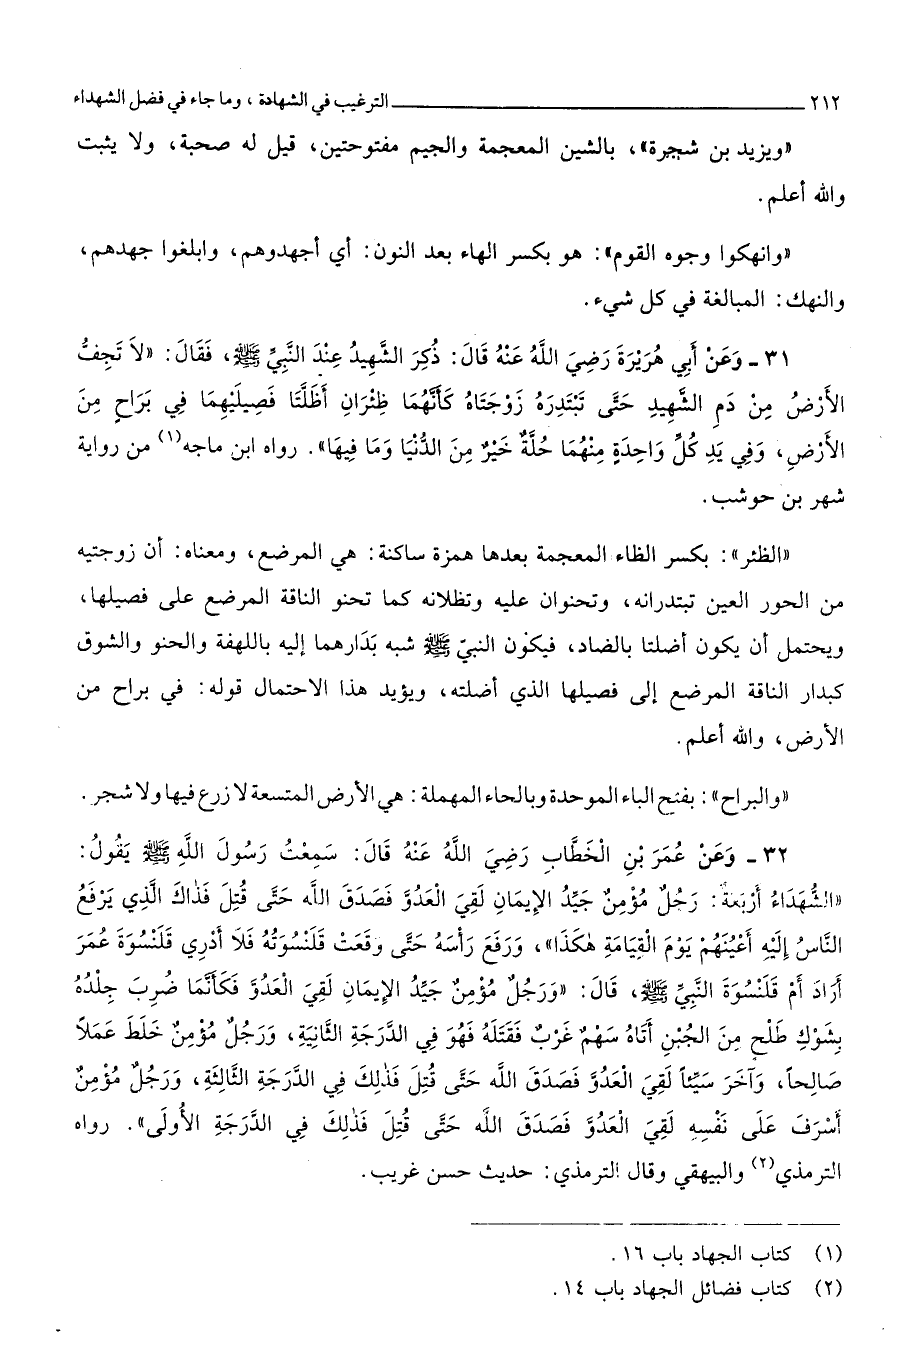 ٢١٢ ـــــــ الترغيب في الشهادة ، وما جاء في فضل الشهداء
«ويزيد بن شجرة»، بالشين المعجمة والجيم مفتوحتين، قيل له صحبة، ولا يثبت
والله أعلم.
«وانهكوا وجوه القوم»: هو بكسر الهاء بعد النون: أي أجهدوهم، وابلغوا جهدهم،
والنهك: المبالغة في كل شيء.
٣١ ـ وَعَنْ أَبِي هُرَيْرَةَ رَضِيَ اللَّهُ عَنْهُ قَالَ: ذُكِرَ الشَّهِيدُ عِنْدَ النَّبِيِّ ﷺ، فَقَالَ: «لاَ تَجِفُّ
الأَرْضُ مِنْ دَمِ الشَّهِيدِ حَتَّى تَبْتَدِرَهُ زَوْجَتَاهُ كَأَنَّهُمَا ظِئْرَانِ أَظَلَّتَا فَصِيلَيْهِمَا فِي بَرَاحٍ مِنَ
الأَرْضِ، وَفِي يَدِ كُلِّ وَاحِدَةٍ مِنْهُمَا حُلَّةٌ خَيْرٌ مِنَ الدُّنْيَا وَمَا فِيهَا». رواه ابن ماجه(١) من رواية
شهر بن حوشب.
«الظئر»: بكسر الظاء المعجمة بعدها همزة ساكنة: هي المرضع، ومعناه: أن زوجتيه
من الحور العين تبتدرانه، وتحنوان عليه وتظلانه كما تحنو الناقة المرضع على فصيلها،
ويحتمل أن يكون أضلتا بالضاد، فيكون النبيّ ﷺ شبه بَدَارهما إليه باللهفة والحنو والشوق
كبدار الناقة المرضع إلى فصيلها الذي أضلته، ويؤيد هذا الاحتمال قوله: في براح من
الأرض، والله أعلم.
«والبراح»: بفتح الباء الموحدة وبالحاء المهملة: هي الأرض المتسعة لا زرع فيها ولا شجر.
٣٢ ـ وَعَنْ عُمَرَ بْنِ الْخَطَّابِ رَضِيَ اللَّهُ عَنْهُ قَالَ: سَمِعْتُ رَسُولَ اللَّهِ ﷺ يَقُولُ:
«الشُّهَدَاءُ أَرْبَعَةٌ: رَجُلٌ مُؤْمِنٌ جَيِّدُ الإِيمَانِ لَقِيَ الْعَدُوَّ فَصَدَقَ اللَّه حَتَّى قُتِلَ فَذَاكَ الَّذِي يَرْفَعُ
النَّاسُ إِلَيْهِ أَعْيُنَهُمْ يَوْمَ الْقِيَامَةِ هٰكَذَا»، وَرَفَعَ رَأْسَهُ حَتَّى وَقَعَتْ قَلَنْسُوَتُهُ فَلاَ أَدْرِي قَلَنْسُوَةَ عُمَرَ
أَرَادَ أَمْ قَلَنْسُوَةَ النَّبِيِّ ﷺ، قَالَ: «وَرَجُلٌ مُؤْمِنٌ جَيِّدُ الإِيمَانِ لَقِيَ الْعَدُوَّ فَكَأَنَّمَا ضُرِبَ جِلْدُهُ
بِشَوْكِ طَلْحٍ مِنَ الجُبْنِ أَتَاهُ سَهْمٌ غَرْبٌ فَقَتَلَهُ فَهُوَ فِي الدَّرَجَةِ الثَّانِيَةِ، وَرَجُلٌ مُؤْمِنٌ خَلَطَ عَمَلاً
صَالِحاً، وَآخَرَ سَيِّئاً لَقِيَ الْعَدُوَّ فَصَدَقَ اللَّه حَتَّى قُتِلَ فَذٰلِكَ فِي الدَّرَجَةِ الثَّالِثَةِ، وَرَجُلٌ مُؤْمِنٌ
أَسْرَفَ عَلَى نَفْسِهِ لَقِيَ الْعَدُوَّ فَصَدَقَ اللَّه حَتَّى قُتِلَ فَذٰلِكَ فِي الدَّرَجَةِ الأُولَى». رواه
الترمذي(٢) والبيهقي وقال الترمذي: حديث حسن غريب.
(١) كتاب الجهاد باب ١٦.
(٢) كتاب فضائل الجهاد باب ١٤.